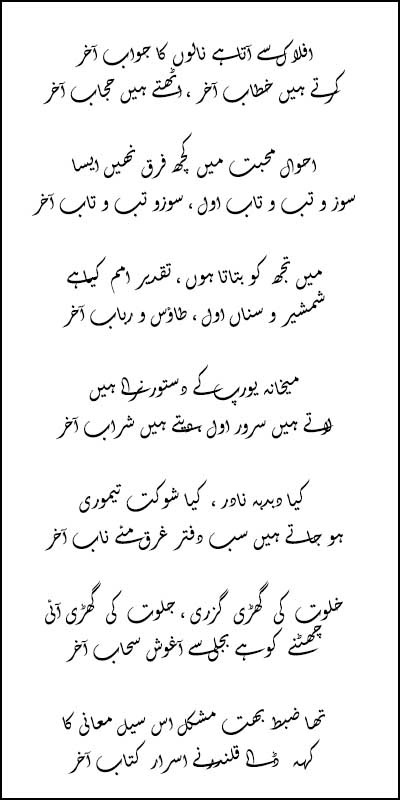 افلاک سے آتا ہے نالوں کا جواب آخر
کرتے ہیں خطاب آخر ، اٹھتے ہیں حجاب آخر
احوال محبت میں کچھ فرق نہیں ایسا
سوز و تب و تاب اول ، سوزو تب و تاب آخر
میں تجھ کو بتاتا ہوں ، تقدیر امم کیا ہے
شمشیر و سناں اول ، طاؤس و رباب آخر
میخانہ یورپ کے دستور نرالے ہیں
لاتے ہیں سرور اول ، دیتے ہیں شراب آخر
کیا دبدبہ نادر ، کیا شوکت تیموری
ہو جاتے ہیں سب دفتر غرق مئے ناب آخر
خلوت کی گھڑی گزری ، جلوت کی گھڑی آئی
چھٹنے کو ہے بجلی سے آغوش سحاب آخر
تھا ضبط بہت مشکل اس سیل معانی کا
کہہ ڈالے قلندر نے اسرار کتاب آخر